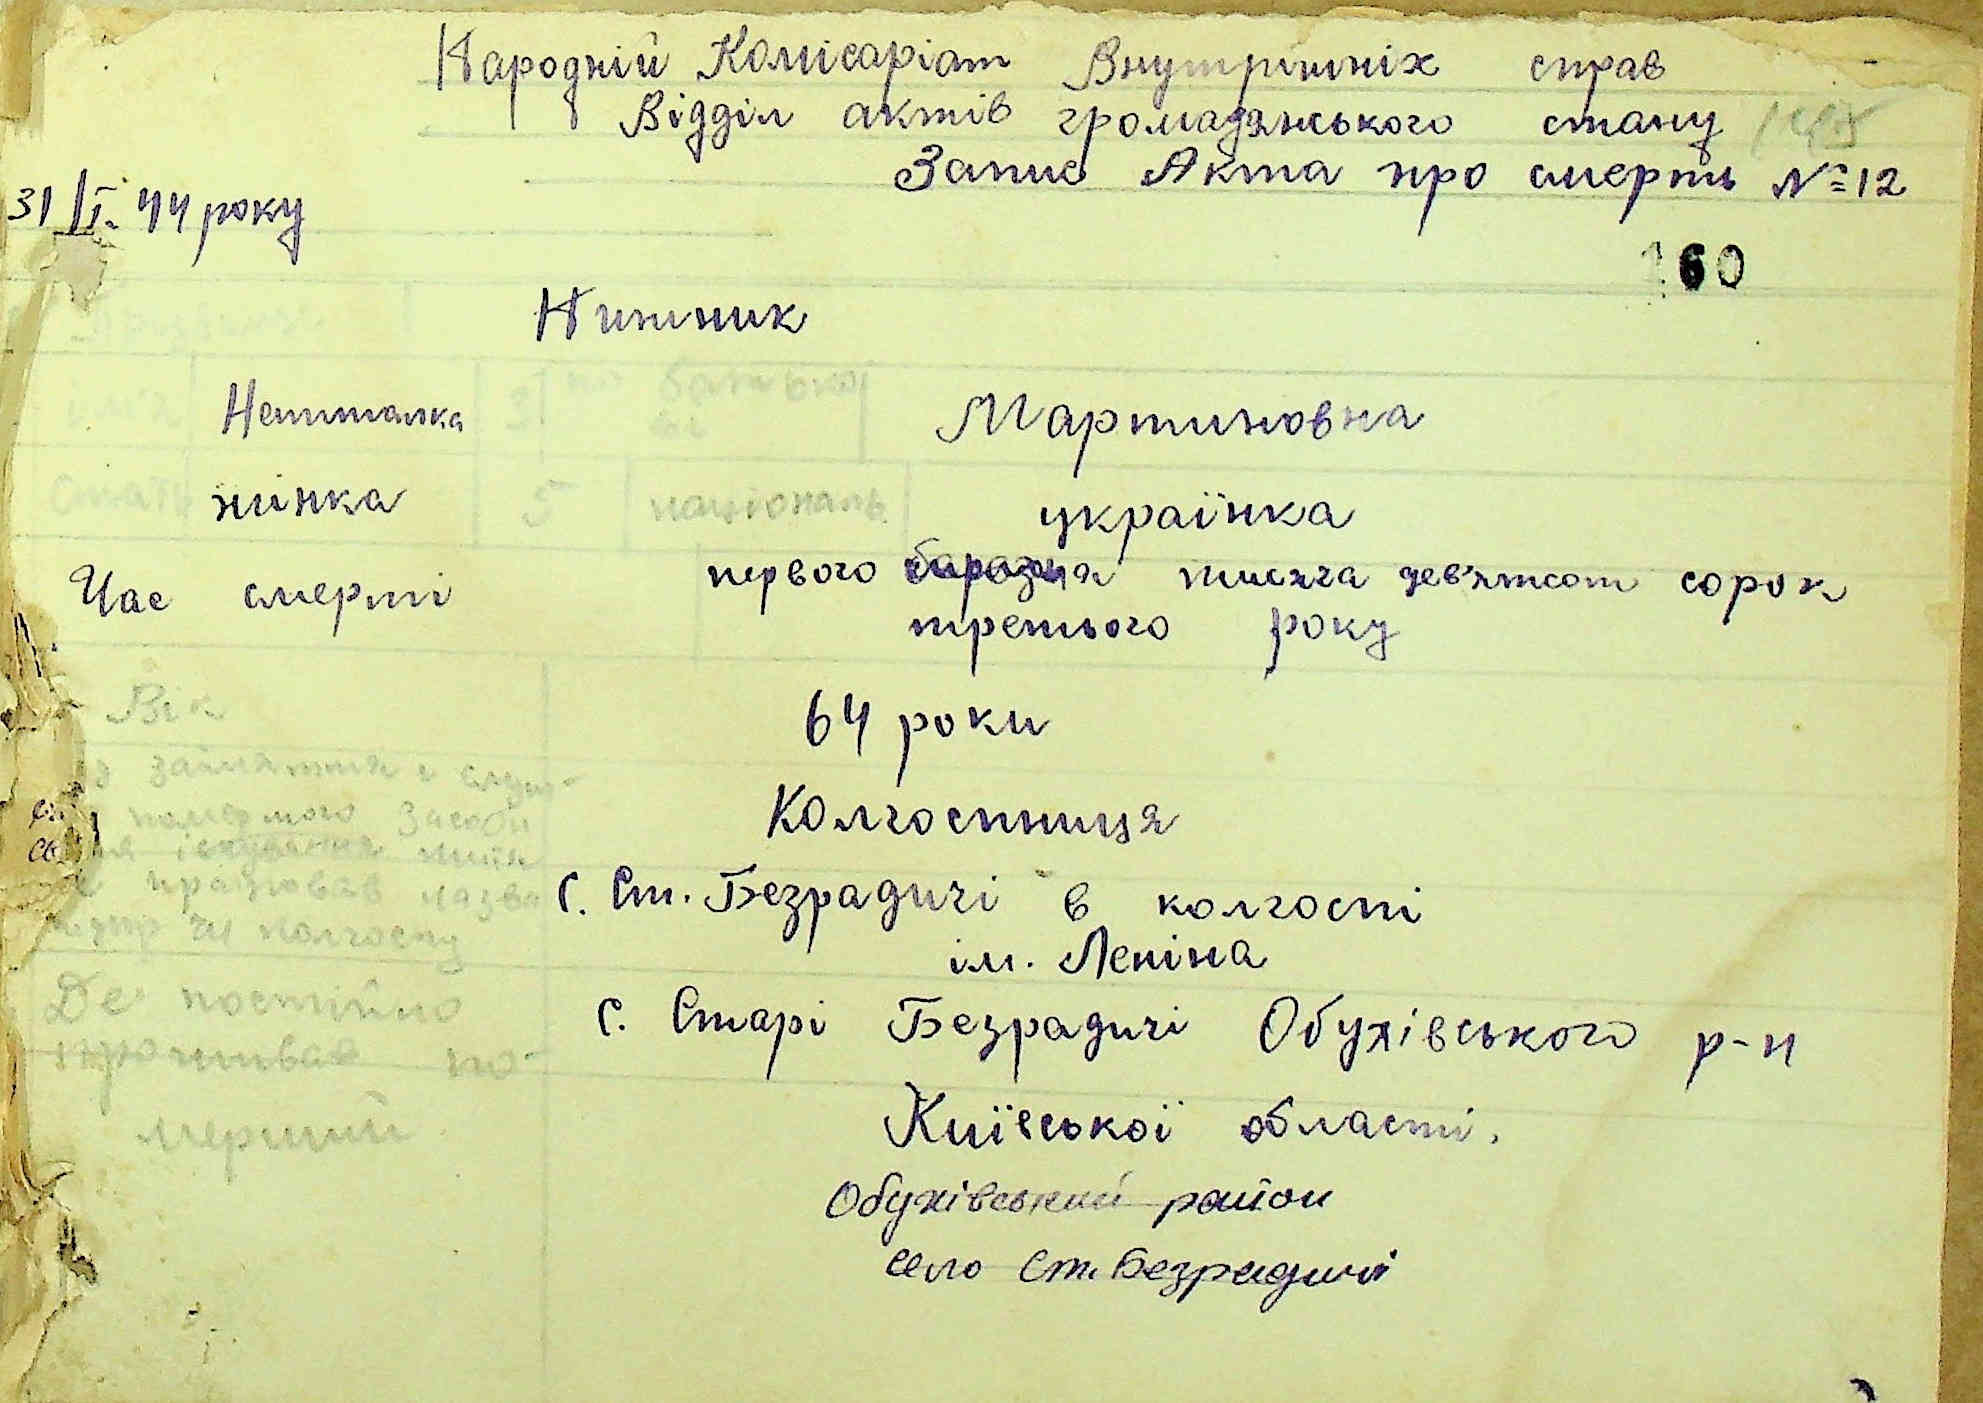 Народній Комісаріат Внутрішніх справ
Відділ актів громадянського стану
Запис Акта про смерть № 12
31/I. 44 року
160
Прізвище
Нитник
ім'я
3
по батькові
Мартиновна
Стать
жінка
5
національ.
українка
Час смерті
первого березня тисяча дев'ятсот сорок
третього року
Вік
64 роки
заняття
померлого засоби
існування
працював назва
чи колгоспу
Колгоспниця
С. Ст. Безрадичі в колгоспі
ім. Леніна
Де постійно
проживав по-
мерший
С. Старі Безрадичі Обухівського р-н
Київської області.
Обухівський район
село Ст. Безрадичі